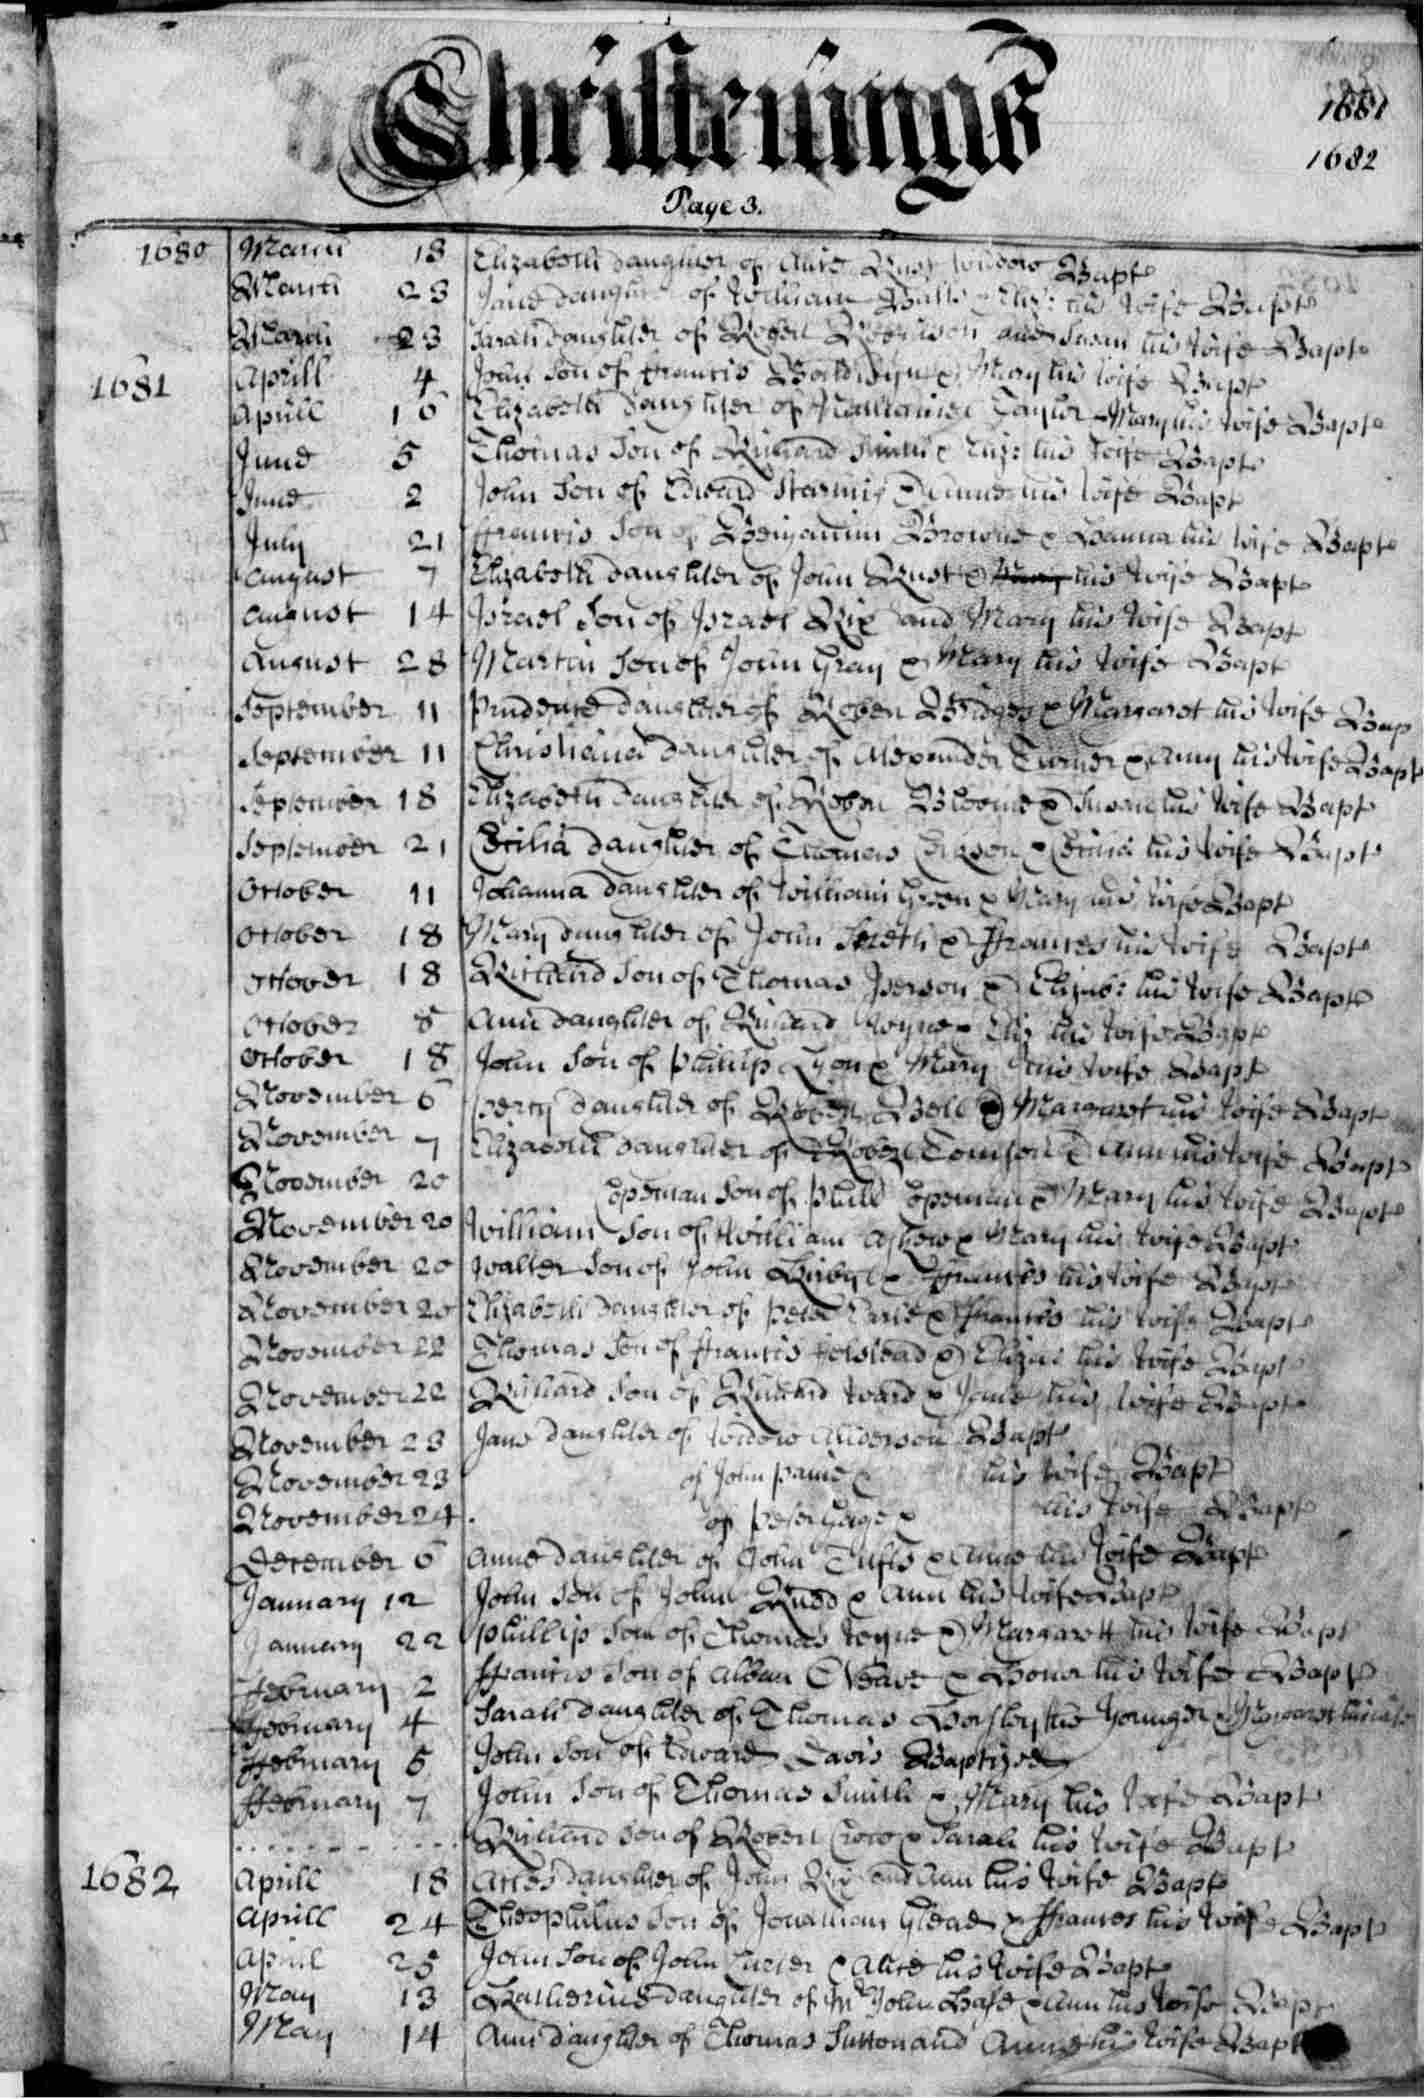 Christenings
1681
1682
Page 3.
1680 March 18 Elizabeth daughter of Alice Rust widdow Bapt
March 23 Jane daughter of William Balls & Eliz: his wife Bapt
March 23 Sarah daughter of Robert and Susan his wife Bapt
1681 Aprill 4 John Son of ffrancis Baldwyn & Mary his wife Bapt
Aprill 10 Elizabeth daughter of Nathaniel Taylor & Mary his wife Bapt
June 5 Thomas Son of Richard Smith & Eliz: his wife Bapt
June 2 John Son of Edward & Anne his wife Bapt
July 21 ffrancis Son of Benjamin Browne & Hanna his wife Bapt
August 7 Elizabeth daughter of John Rust & his wife Bapt
August 14 Israel Son of Israel Rix and Mary his wife Bapt
August 28 Martin Son of John Gray & Mary his wife Bapt
September 11 Prudence daughter of Robert Bridges & Margaret his wife Bap
September 11 Christiana daughter of Alexander Turner & Amy his wife Bapt
September 18 Elizabeth daughter of Robert & Susan his wife Bapt
September 21 Cecilia daughter of Thomas & his wife Bapt
October 11 Johanna daughter of William Green & Mary his wife Bapt
October 18 Mary daughter of John & ffrances his wife Bapt
October 18 Richard Son of Thomas Iverson & Elizab: his wife Bapt
October 8 Ann daughter of Richard & Eliz his wife Bapt
October 18 John Son of Phillip Lyon & Mary his wife Bapt
November 6 daughter of Robert Bell & Margaret his wife Bapt
November 7 Elizabeth daughter of Robert Tomson & Ann his wife Bapt
November 20 Copeman Son of Phill Copeman & Mary his wife Bapt
November 20 William Son of William & Mary his wife Bapt
November 20 Walter Son of John Kirby & ffrances his wife Bapt
November 20 Elizabeth daughter of Peter & ffrances his wife Bapt
November 22 Thomas Son of ffrancis & his wife Bapt
November 22 Richard Son of Richard Ward & Jane his wife Bapt
November 23 Jane daughter of widdow Bapt
November 23 of John Paine & his wife Bapt
November 24 of Peter Gage & his wife Bapt
December 6 Anne daughter of John Tufts & Anne his wife Bapt
January 12 John Son of John Rudd & Ann his wife Bapt
January 22 Phillip Son of Thomas & Margarett his wife Bapt
ffebruary 2 ffrancis Son of Alban & his wife Bapt
ffebruary 4 Sarah daughter of Thomas the Younger & Margaret his wife
ffebruary 5 John Son of Edward Davis Baptized
ffebruary 7 John Son of Thomas Smith & Mary his wife Bapt
Richard Son of Robert Crow & Sarah his wife Bapt
1682 Aprill 18 daughter of John Rix and Ann his wife Bapt
Aprill 24 Theophilus Son of Jonathan & ffrances his wife Bapt
Aprill 25 John Son of John & Alice his wife Bapt
May 13 Katherine daughter of Mr John & Ann his wife Bapt
May 14 Ann daughter of Thomas Sutton and Anne his wife Bapt